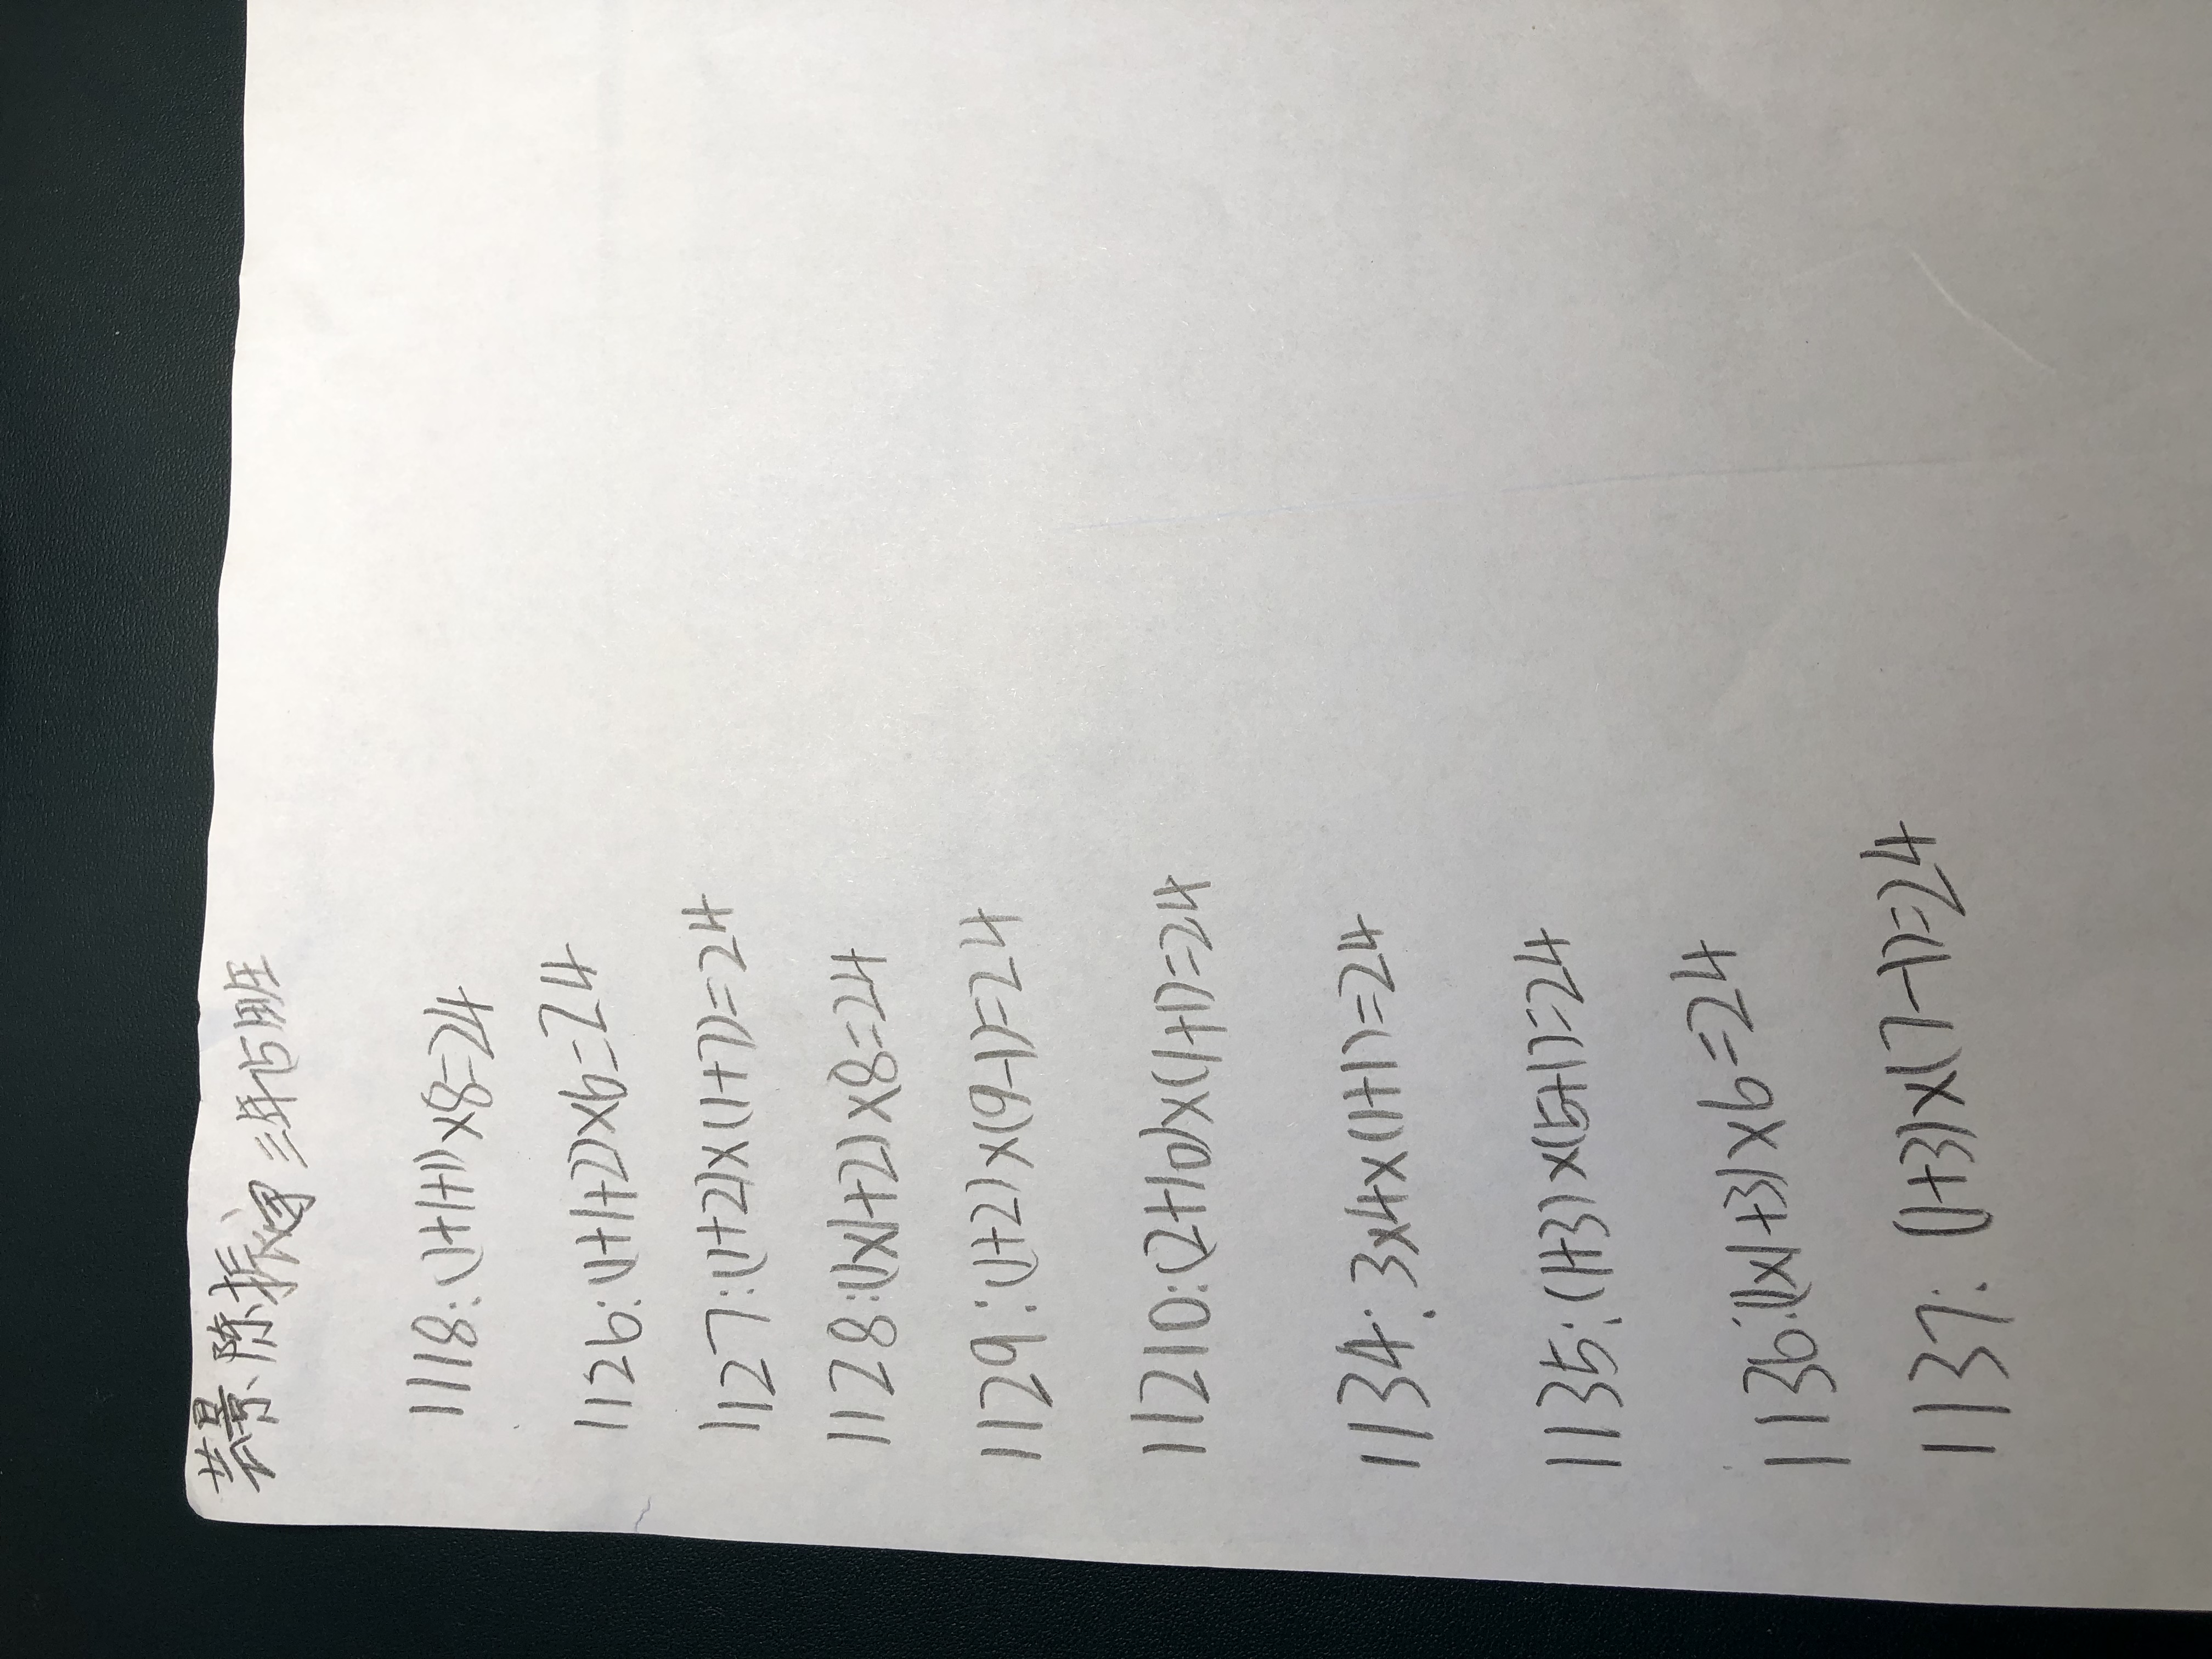 芸景 陈振宇 三年5班
1118:(1+1+1)×8=24
1126:(1+1+2)×6=24
1127:(1+2)×(1+7)=24
1128:(1×1+2)×8=24
1129:(1+2)×(9-1)=24
11210:(2+10)×(1+1)=24
1134:3×4×(1+1)=24
1135:(1+3)×(5+1)=24
1136:(1×1+3)×6=24
1137:(1+3)×(7-1)=24